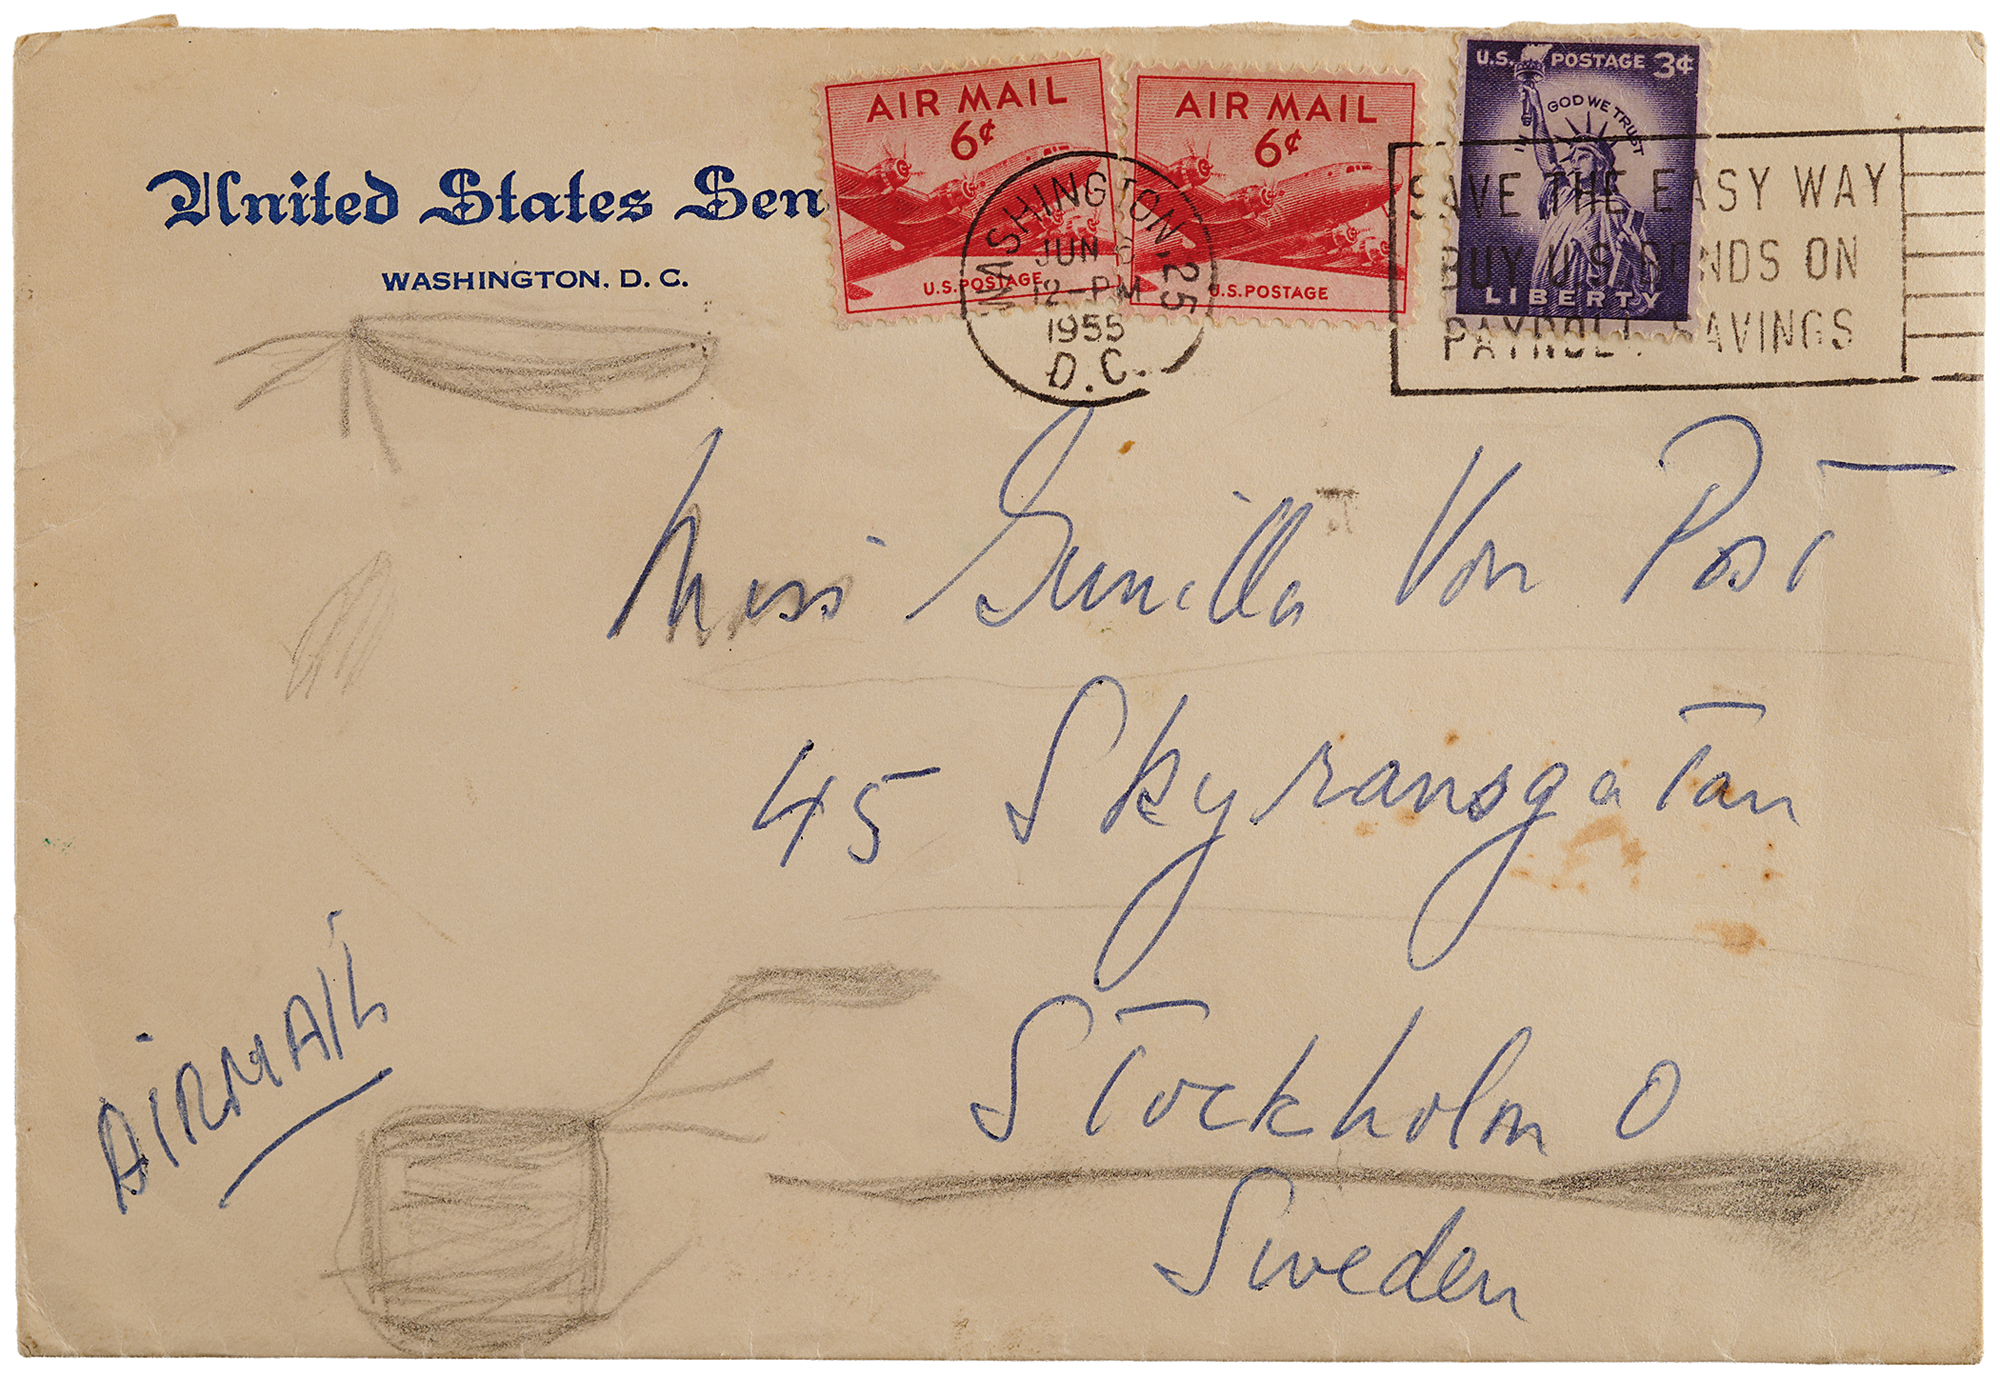 United States Sen
WASHINGTON, D. C.
AIR MAIL
6¢
U.S. POSTAGE
AIR MAIL
6¢
U.S. POSTAGE
U.S. POSTAGE 3¢
IN GOD WE TRUST
LIBERTY
WASHINGTON, 25
JUN 6
12-PM
1955
D.C.
SAVE THE EASY WAY
BUY U.S. BONDS ON
PAYROLL SAVINGS
Miss Gunilla Von Post
45 Skyransgatan
Stockholm O
Sweden
AIRMAIL